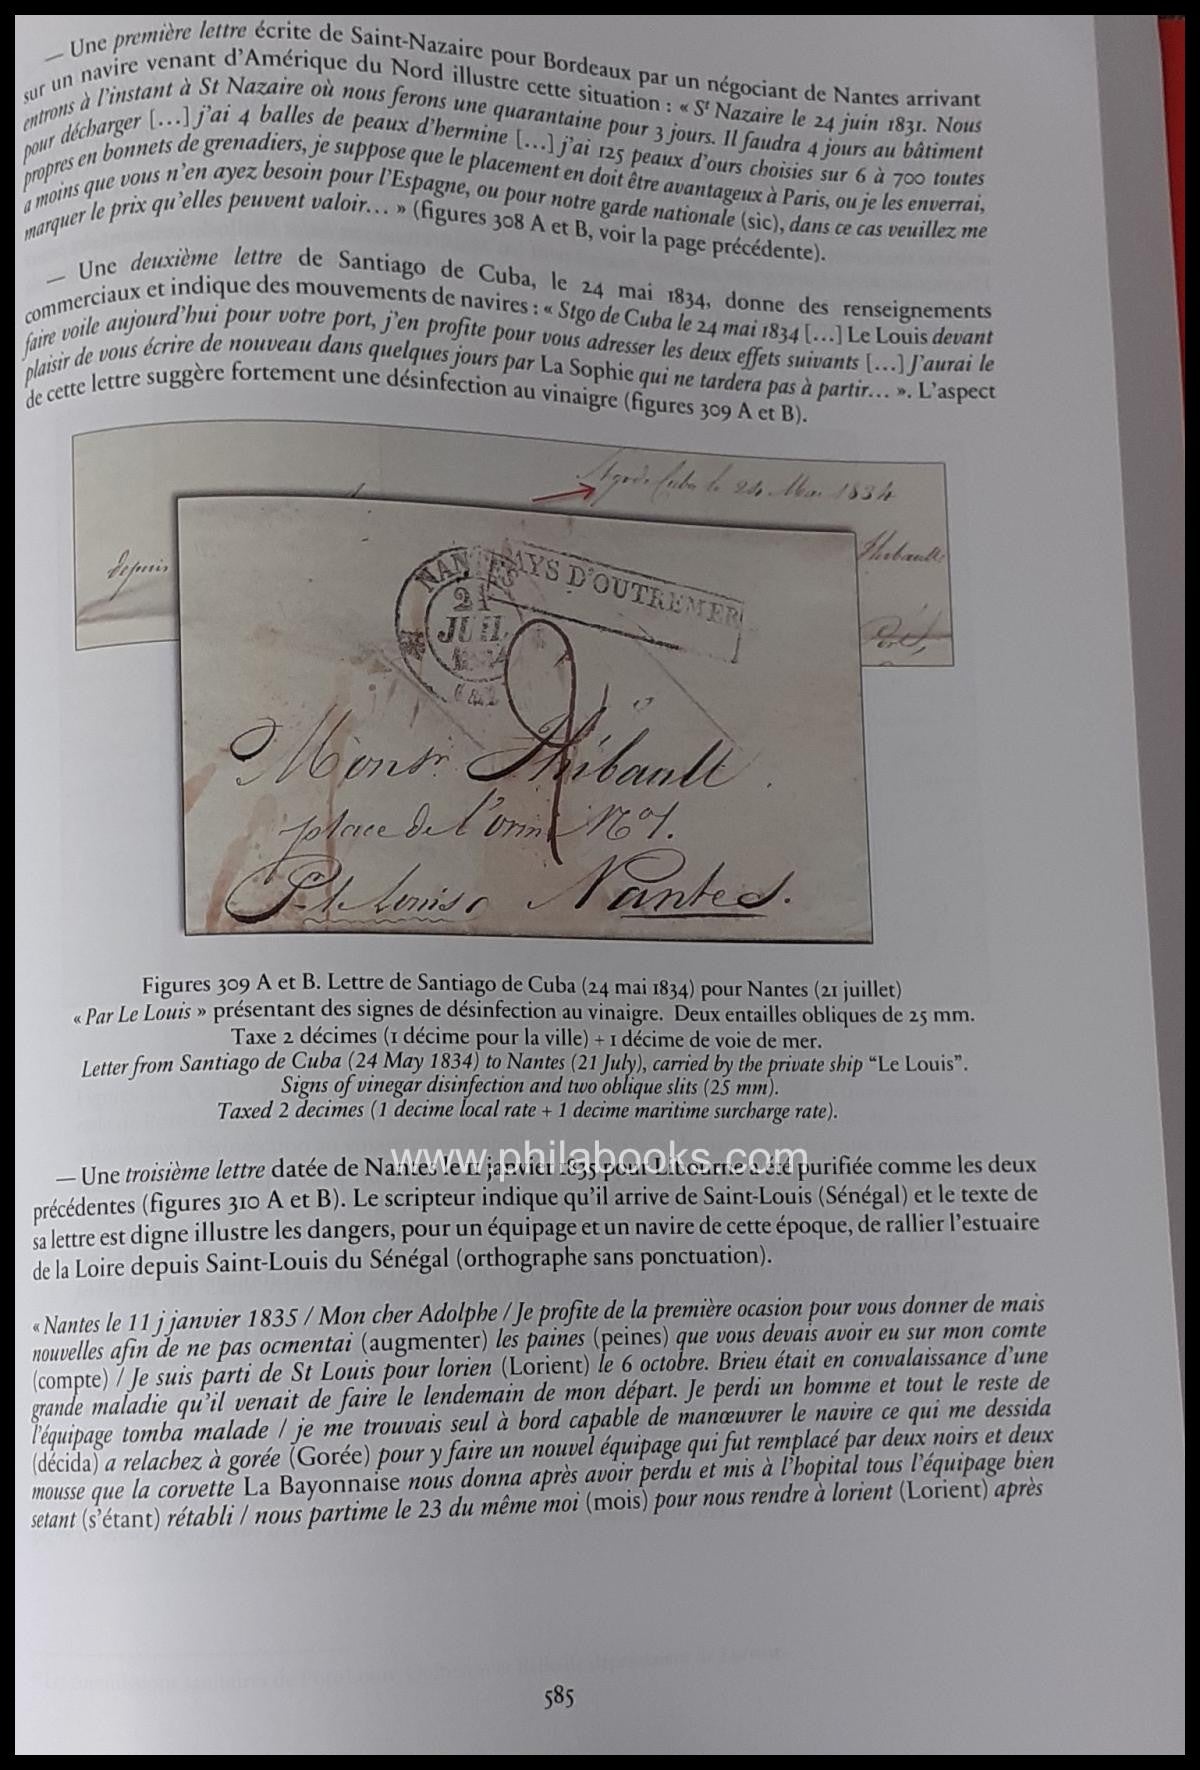 — Une première lettre écrite de Saint-Nazaire pour Bordeaux par un négociant de Nantes arrivant
sur un navire venant d'Amérique du Nord illustre cette situation : « St Nazaire le 24 juin 1831. Nous
entrons à l'instant à St Nazaire où nous ferons une quarantaine pour 3 jours. Il faudra 4 jours au bâtiment
pour décharger [...] j'ai 4 balles de peaux d'hermine [...] j'ai 125 peaux d'ours choisies sur 6 à 700 toutes
propres en bonnets de grenadiers, je suppose que le placement en doit être avantageux à Paris, ou je les enverrai,
a moins que vous n'en ayez besoin pour l'Espagne, ou pour notre garde nationale (sic), dans ce cas veuillez me
marquer le prix qu'elles peuvent valoir... » (figures 308 A et B, voir la page précédente).
— Une deuxième lettre de Santiago de Cuba, le 24 mai 1834, donne des renseignements
commerciaux et indique des mouvements de navires : « Stgo de Cuba le 24 mai 1834 [...] Le Louis devant
faire voile aujourd'hui pour votre port, j'en profite pour vous adresser les deux effets suivants [...] J'aurai le
plaisir de vous écrire de nouveau dans quelques jours par La Sophie qui ne tardera pas à partir... ». L'aspect
de cette lettre suggère fortement une désinfection au vinaigre (figures 309 A et B).
Stgo de Cuba le 24 Mai 1834
depuis
Thibault
NANTES
21
JUIL
1834
PAYS D'OUTREMER
2
Monsr. Thibault
place de l'orme No 1.
Pr le Louis Nantes.
Figures 309 A et B. Lettre de Santiago de Cuba (24 mai 1834) pour Nantes (21 juillet)
« Par Le Louis » présentant des signes de désinfection au vinaigre. Deux entailles obliques de 25 mm.
Taxe 2 décimes (1 décime pour la ville) + 1 décime de voie de mer.
Letter from Santiago de Cuba (24 May 1834) to Nantes (21 July), carried by the private ship “Le Louis”.
Signs of vinegar disinfection and two oblique slits (25 mm).
Taxed 2 decimes (1 decime local rate + 1 decime maritime surcharge rate).
www.philabooks.com
— Une troisième lettre datée de Nantes le 11 janvier 1835 pour Libourne a été purifiée comme les deux
précédentes (figures 310 A et B). Le scripteur indique qu'il arrive de Saint-Louis (Sénégal) et le texte de
sa lettre est digne illustre les dangers, pour un équipage et un navire de cette époque, de rallier l'estuaire
de la Loire depuis Saint-Louis du Sénégal (orthographe sans ponctuation).
« Nantes le 11 j janvier 1835 / Mon cher Adolphe / Je profite de la première ocasion pour vous donner de mais
nouvelles afin de ne pas ocmentai (augmenter) les paines (peines) que vous devais avoir eu sur mon comte
(compte) / Je suis parti de St Louis pour lorien (Lorient) le 6 octobre. Brieu était en convalaissance d'une
grande maladie qu'il venait de faire le lendemain de mon départ. Je perdi un homme et tout le reste de
l'équipage tomba malade / je me trouvais seul à bord capable de manœuvrer le navire ce qui me dessida
(décida) a relachez à gorée (Gorée) pour y faire un nouvel équipage qui fut remplacé par deux noirs et deux
mousse que la corvette La Bayonnaise nous donna après avoir perdu et mis à l'hopital tous l'équipage bien
setant (s'étant) rétabli / nous partime le 23 du même moi (mois) pour nous rendre à lorient (Lorient) après
585